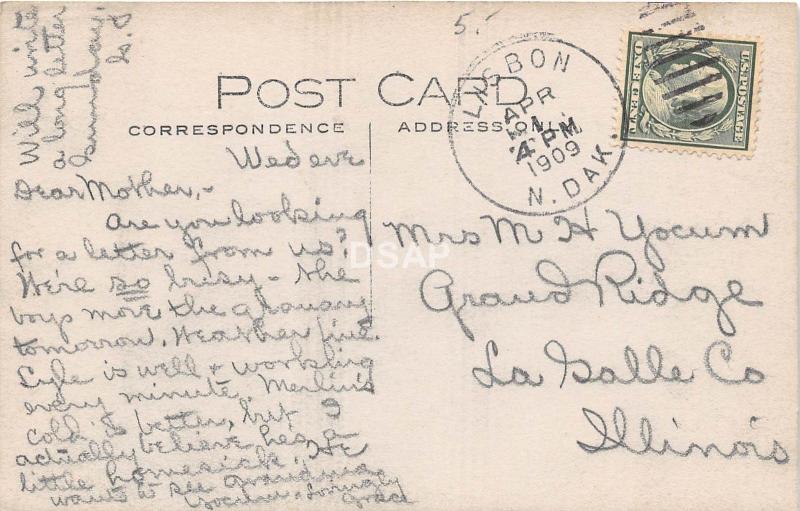 5.-
Will write
a long letter
Sunday.
POST CARD
CORRESPONDENCE
ADDRESS ONLY
LISBON
APR
4 PM
1909
N. DAK.
U.S. POSTAGE
ONE CENT
Wed eve
Dear Mother,-
Are you looking
for a letter from us?
We're so busy - the
boys move the granary
tomorrow. Weather fine.
Lyle is well & working
every minute. Merlin's
cold is better, but I
actually believe he's a
little homesick. He
wants to see Grandma
Yocum. Lovingly
Grace
Mrs M H Yocum
Grand Ridge
La Salle Co
Illinois
DSAP